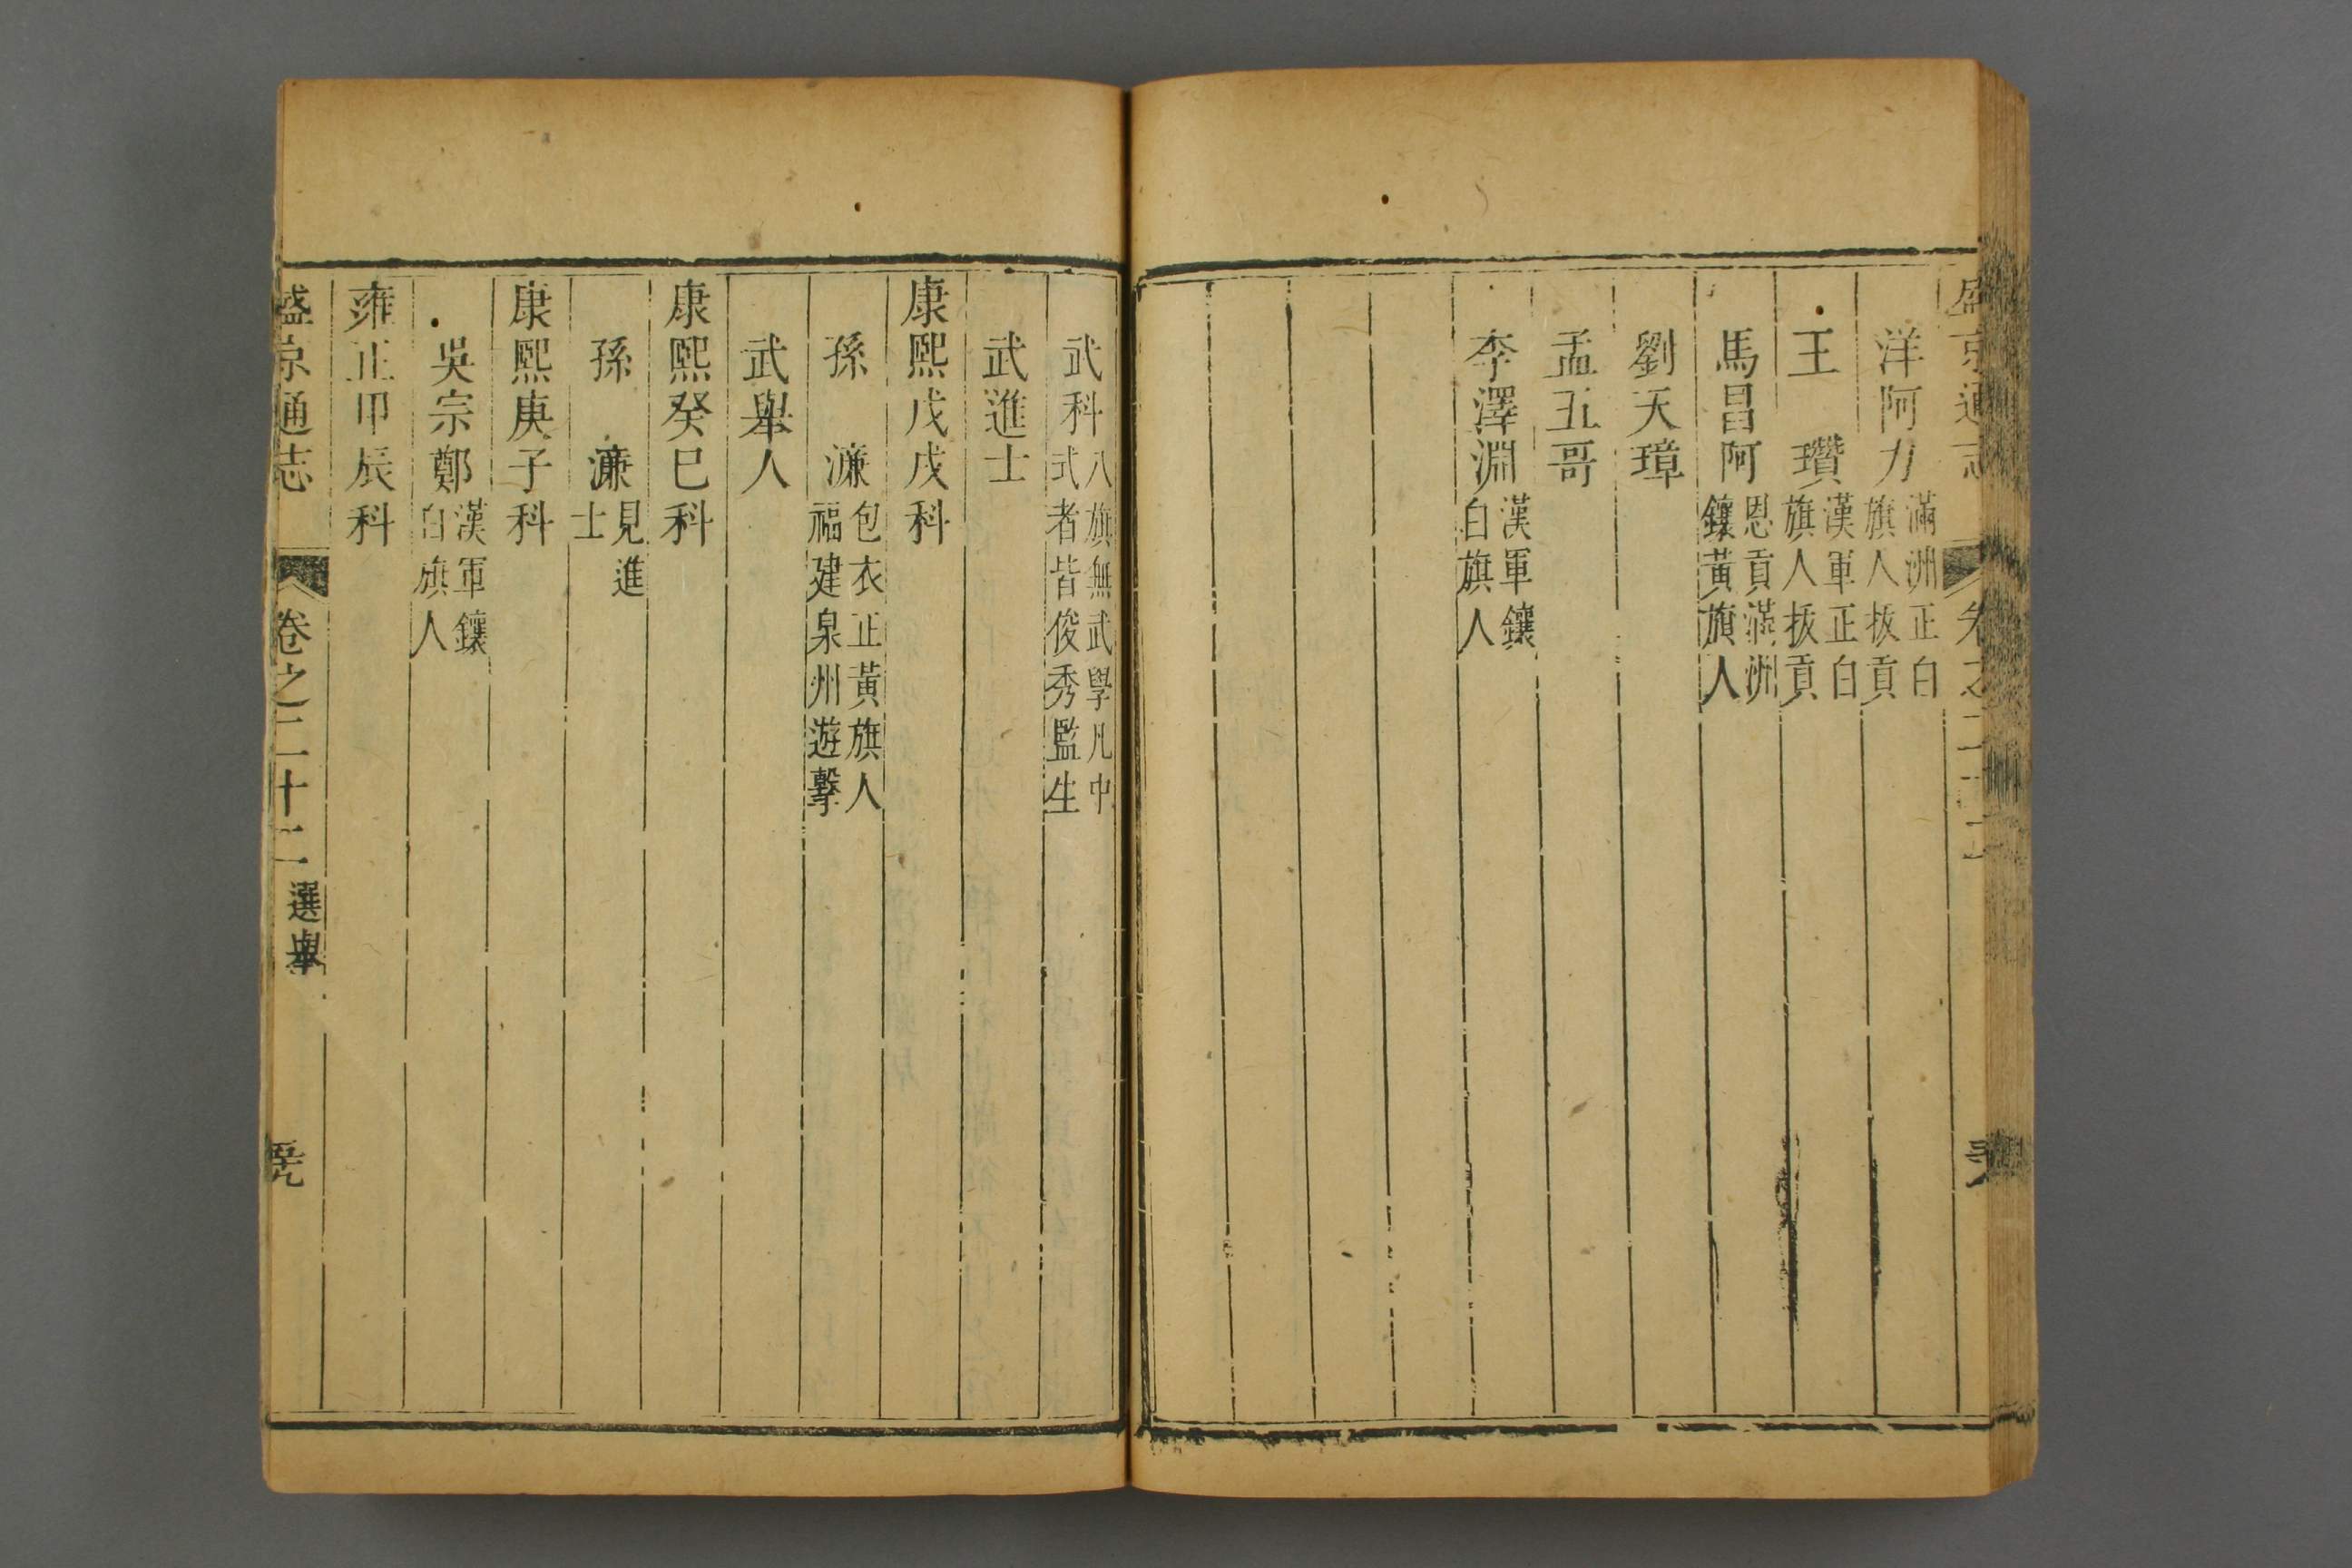 盛京通志 卷之二十二
洋阿力 滿洲正白旗人拔貢
王 瓚 漢軍正白旗人拔貢
馬昌阿 恩貢滿洲鑲黃旗人
劉天璋
孟五哥
李澤淵 漢軍鑲白旗人
武科 八旗無武學凡中式者皆俊秀監生
武進士
康熙戊戌科
孫 濂 包衣正黃旗人福建泉州遊擊
武舉人
康熙癸巳科
孫 濂 見進士
康熙庚子科
吳宗鄭 漢軍鑲白旗人
雍正甲辰科
盛京通志 卷之二十二 選舉